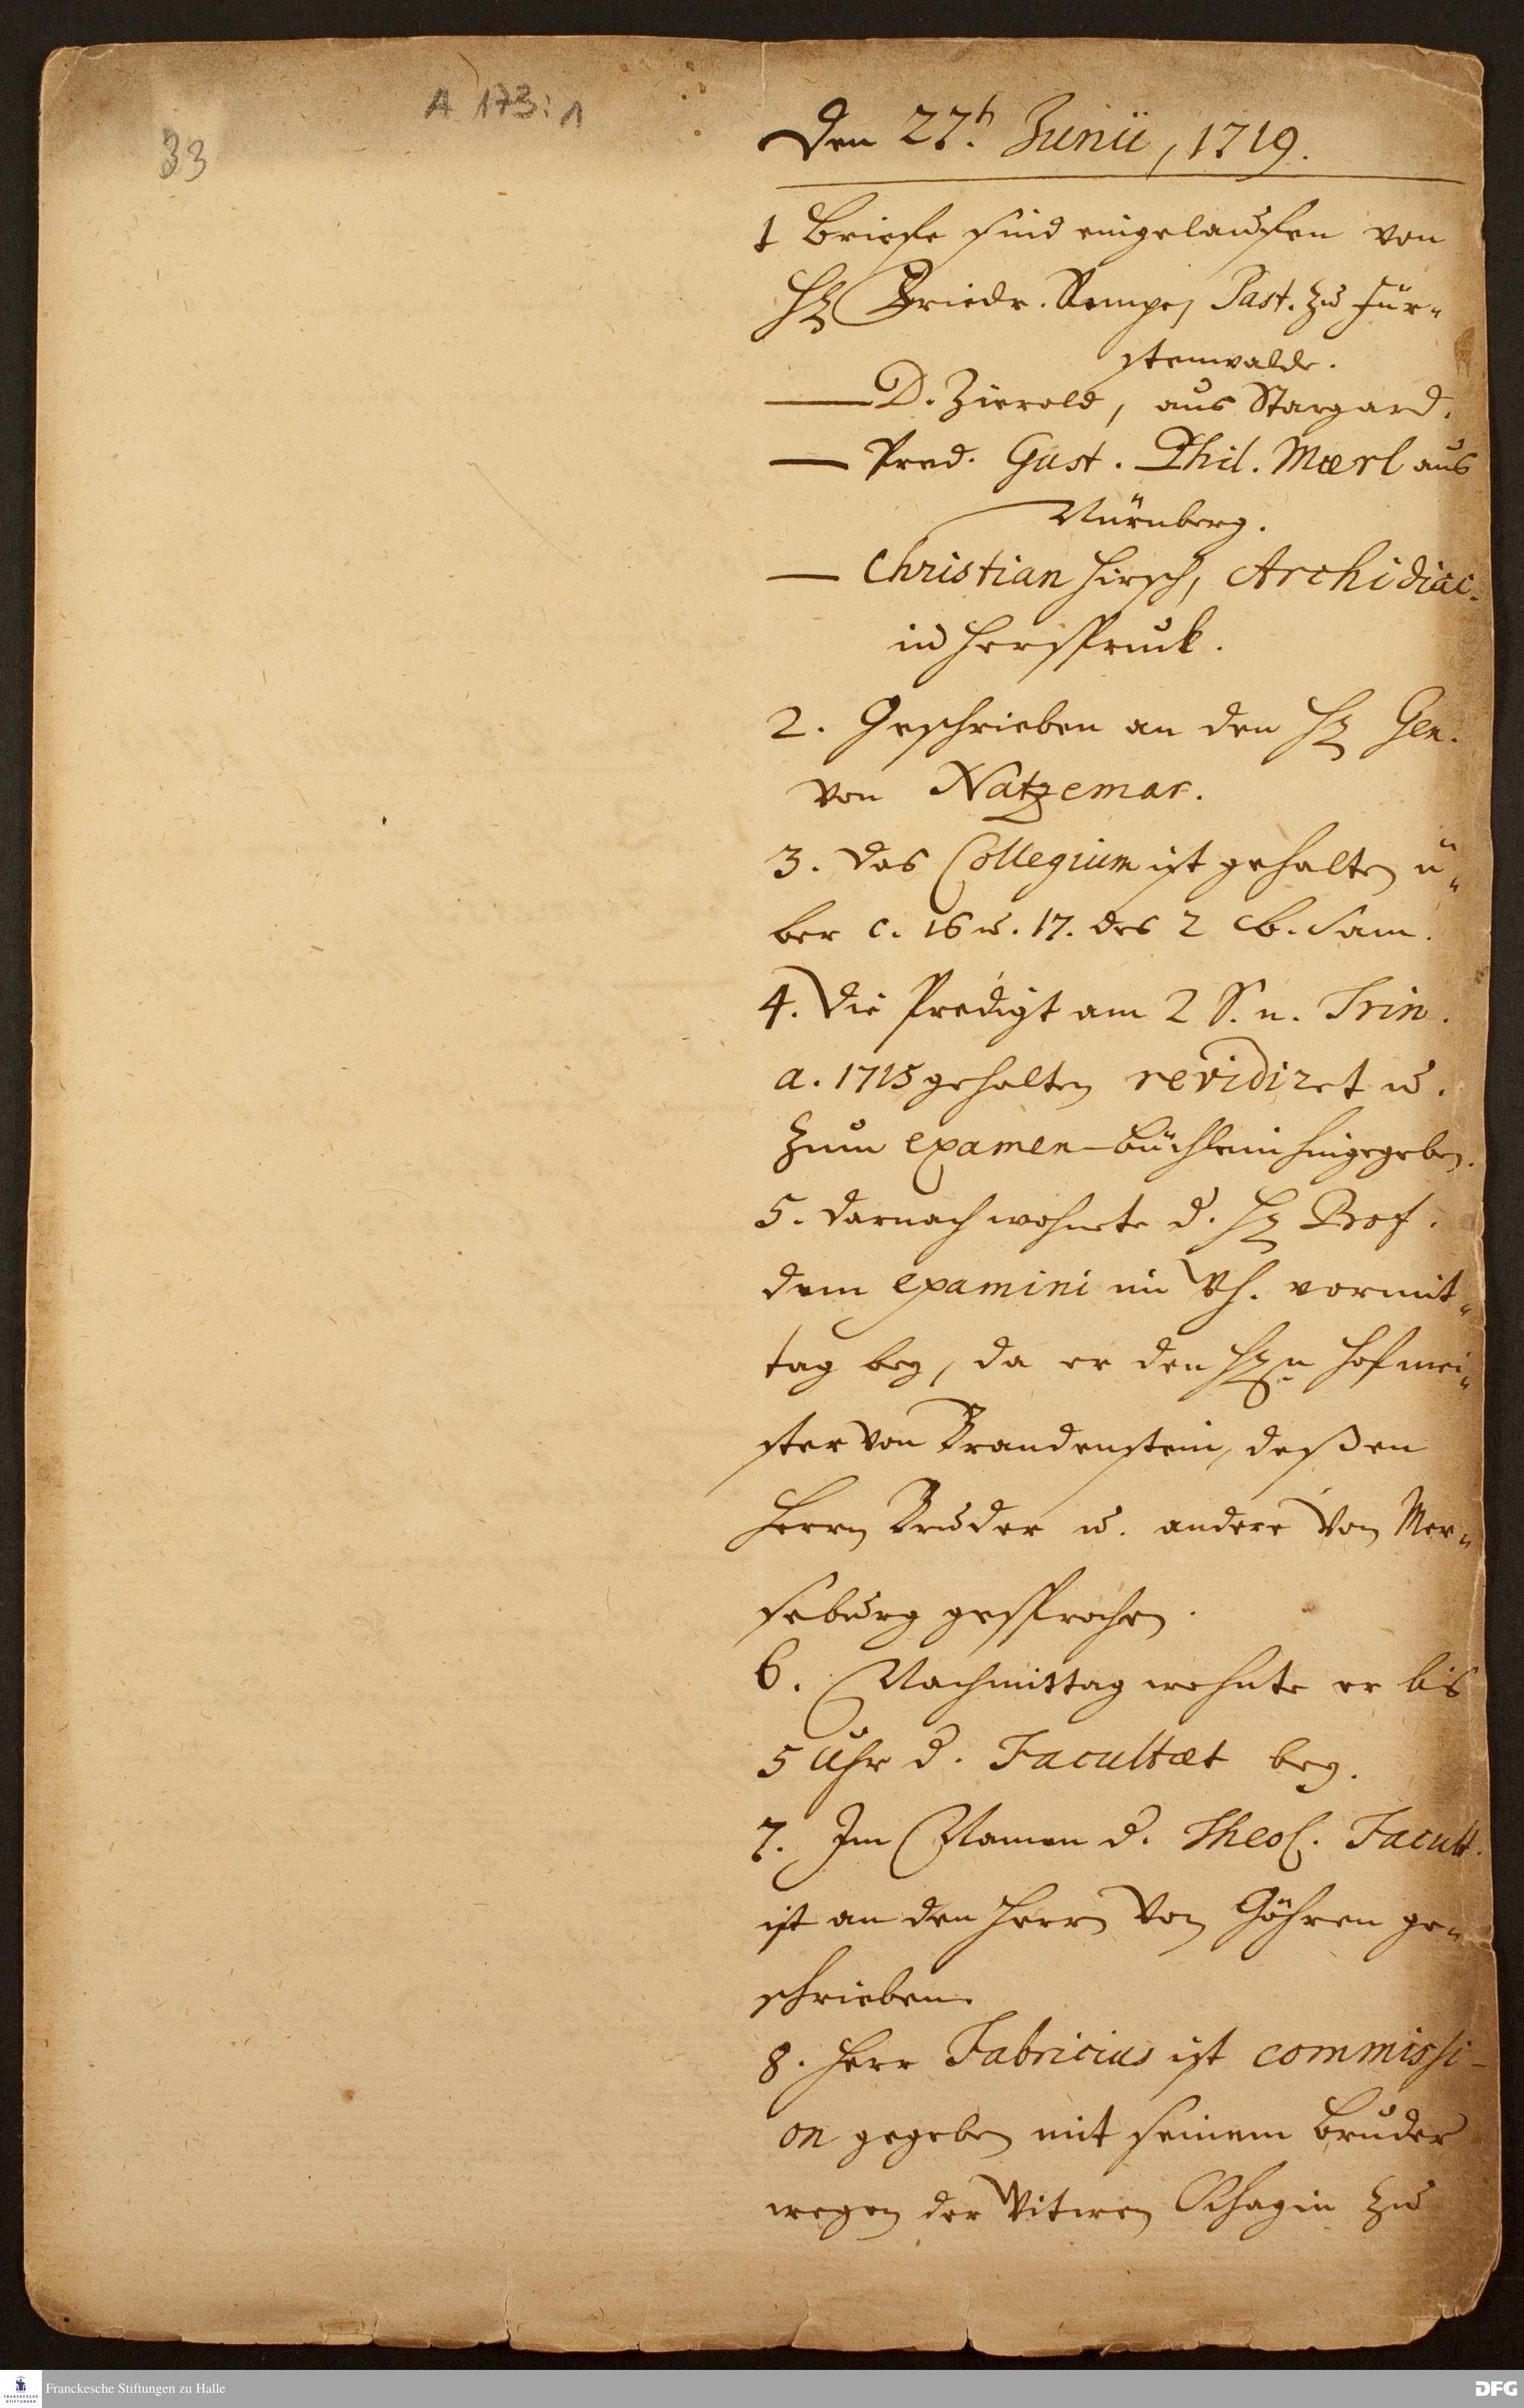 A 173:1
33
Den 27.h Junii, 1719.
1 Briefe sind eingelauffen von
Hr Friedr. Kempe, Past. zu Für-
stenwalde.
— D. Zierold, aus Stargard.
— Pred. Gust. Phil. Mœrl aus
Nürnberg.
— Christian Hirsch, Archidiac.
in Herspruck.
2. Geschrieben an den Hr Gen.
von Natzemar.
3. das Collegium ist gehalten ü-
ber c. 16 u. 17. des 2 B. Sam.
4. Die Predigt am 2 S. n. Trin.
a. 1715 gehalten revidiret u.
zum examen-büchlein hingegeben.
5. darnach wohnete d. Hr Prof.
dem examini im Wh. vormit-
tag bey, da er den Hrn Hofmei-
ster von Brandenstein, deßen
Herrn Bruder u. andere von Mer-
seburg gesprochen.
6. Nachmittag wohnte er bis
5 Uhr d. Facultæt bey.
7. Im Namen d. Theol. Facult.
ist an den Herrn von Göhren ge-
schrieben.
8. Herr Fabricius ist commissi-
on gegeben mit seinem bruder
wegen der Witwen zu
Franckesche Stiftungen zu Halle
DFG